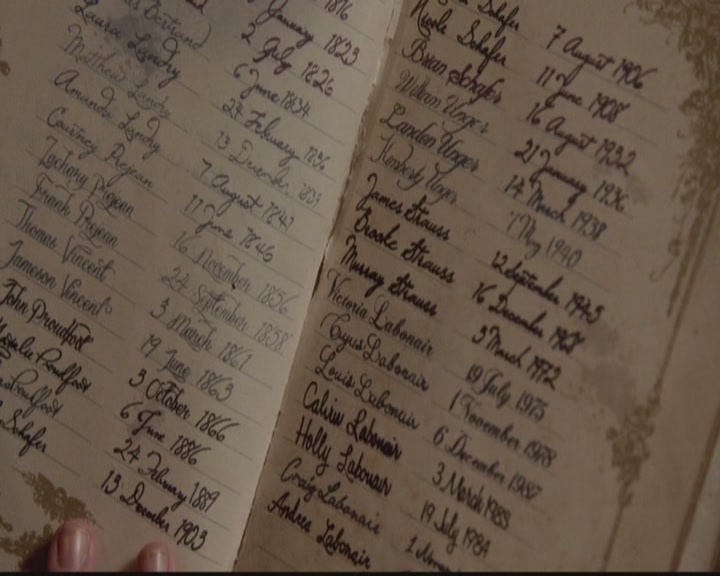 1816
January 1823
2 July 1826
Bertrand 6 June 1834
Laura Landry 24 February 1836
Matthew Landry 13 December 1839
Amanda Landry 7 August 1843
Courtney Prejean 11 June 1846
Zachary Prejean 16 November 1856
Frank Prejean 24 September 1858
Thomas Vincent 3 March 1861
Jameson Vincent 19 June 1863
John Proudfoot 3 October 1866
Natalie Proudfoot 6 June 1886
Proudfoot 24 February 1889
Schafer 13 December 1903
Schafer 7 August 1906
Nicole Schafer 11 June 1908
Brian Schafer 16 August 1932
William Unger 21 January 1936
Landon Unger 14 March 1938
Kimberly Unger 1 May 1940
James Strauss 12 September 1945
Brooke Strauss 16 December 1968
Murray Strauss 3 March 1972
Victoria Labonair 19 July 1975
Cyrus Labonair 1 November 1978
Louis Labonair 6 December
Calvin Labonair 3 March 1983
Holly Labonair 19 July 1984
Craig Labonair 1
Andrea Labonair